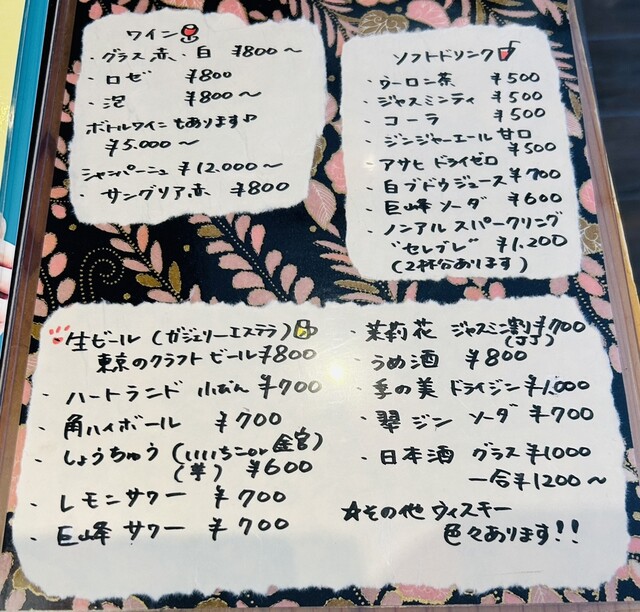 ワイン
・グラス 赤・白 ¥800～
・ロゼ ¥800
・泡 ¥800～
ボトルワインもあります♪
¥5,000～
シャンパーニュ ¥12,000～
・サングリア赤 ¥800
ソフトドリンク
・ウーロン茶 ¥500
・ジャスミンティ ¥500
・コーラ ¥500
・ジンジャーエール 甘口 ¥500
・アサヒ ドライゼロ
・白ブドウジュース ¥700
・巨峰ソーダ ¥600
・ノンアル スパークリング
"セレブレ" ¥1,200
(2杯分あります)
生ビール (ガージェリーエステラ)
東京のクラフトビール ¥800
・ハートランド 小びん ¥700
・角ハイボール ¥700
・しょうちゅう (いいちこor 金宮)
(芋) ¥600
・レモンサワー ¥700
・巨峰サワー ¥700
・茉莉花 ジャスミン割 ¥700
(JJ)
・うめ酒 ¥800
・季の美 ドライジン ¥1,000
・翠ジン ソーダ ¥700
・日本酒 グラス ¥1000
一合 ¥1200～
☆その他 ウィスキー
色々あります!!